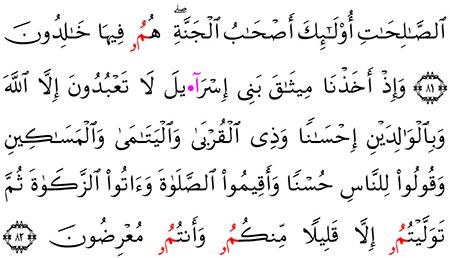 ٱلصَّـٰلِحَـٰتِ أُوْلَـٰٓئِكَ أَصْحَـٰبُ ٱلْجَنَّةِۖ هُمُۥ فِيهَا خَـٰلِدُونَ
۝٨١ وَإِذْ أَخَذْنَا مِيثَـٰقَ بَنِى إِسْرَآ•يلَ لَا تَعْبُدُونَ إِلَّا ٱللَّهَ
وَبِٱلْوَٰلِدَيْنِ إِحْسَـٰنًا وَذِى ٱلْقُرْبَىٰ وَٱلْيَتَـٰمَىٰ وَٱلْمَسَـٰكِينِ
وَقُولُواْ لِلنَّاسِ حُسْنًا وَأَقِيمُواْ ٱلصَّلَوٰةَ وَءَاتُواْ ٱلزَّكَوٰةَ ثُمَّ
تَوَلَّيْتُمُۥ إِلَّا قَلِيلًا مِّنكُمُۥ وَأَنتُمُۥ مُعْرِضُونَ ۝٨٢